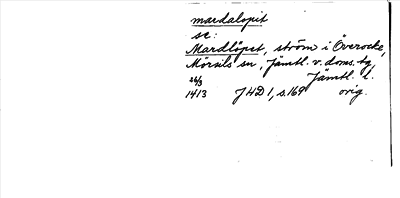 mardalopit
se:
Mardlöpet, ström i Överocke,
Mörsils sn, Jämtl. v. doms. tg,
26/3 Jämtl. l.
1413 JHD 1, s. 169 orig.